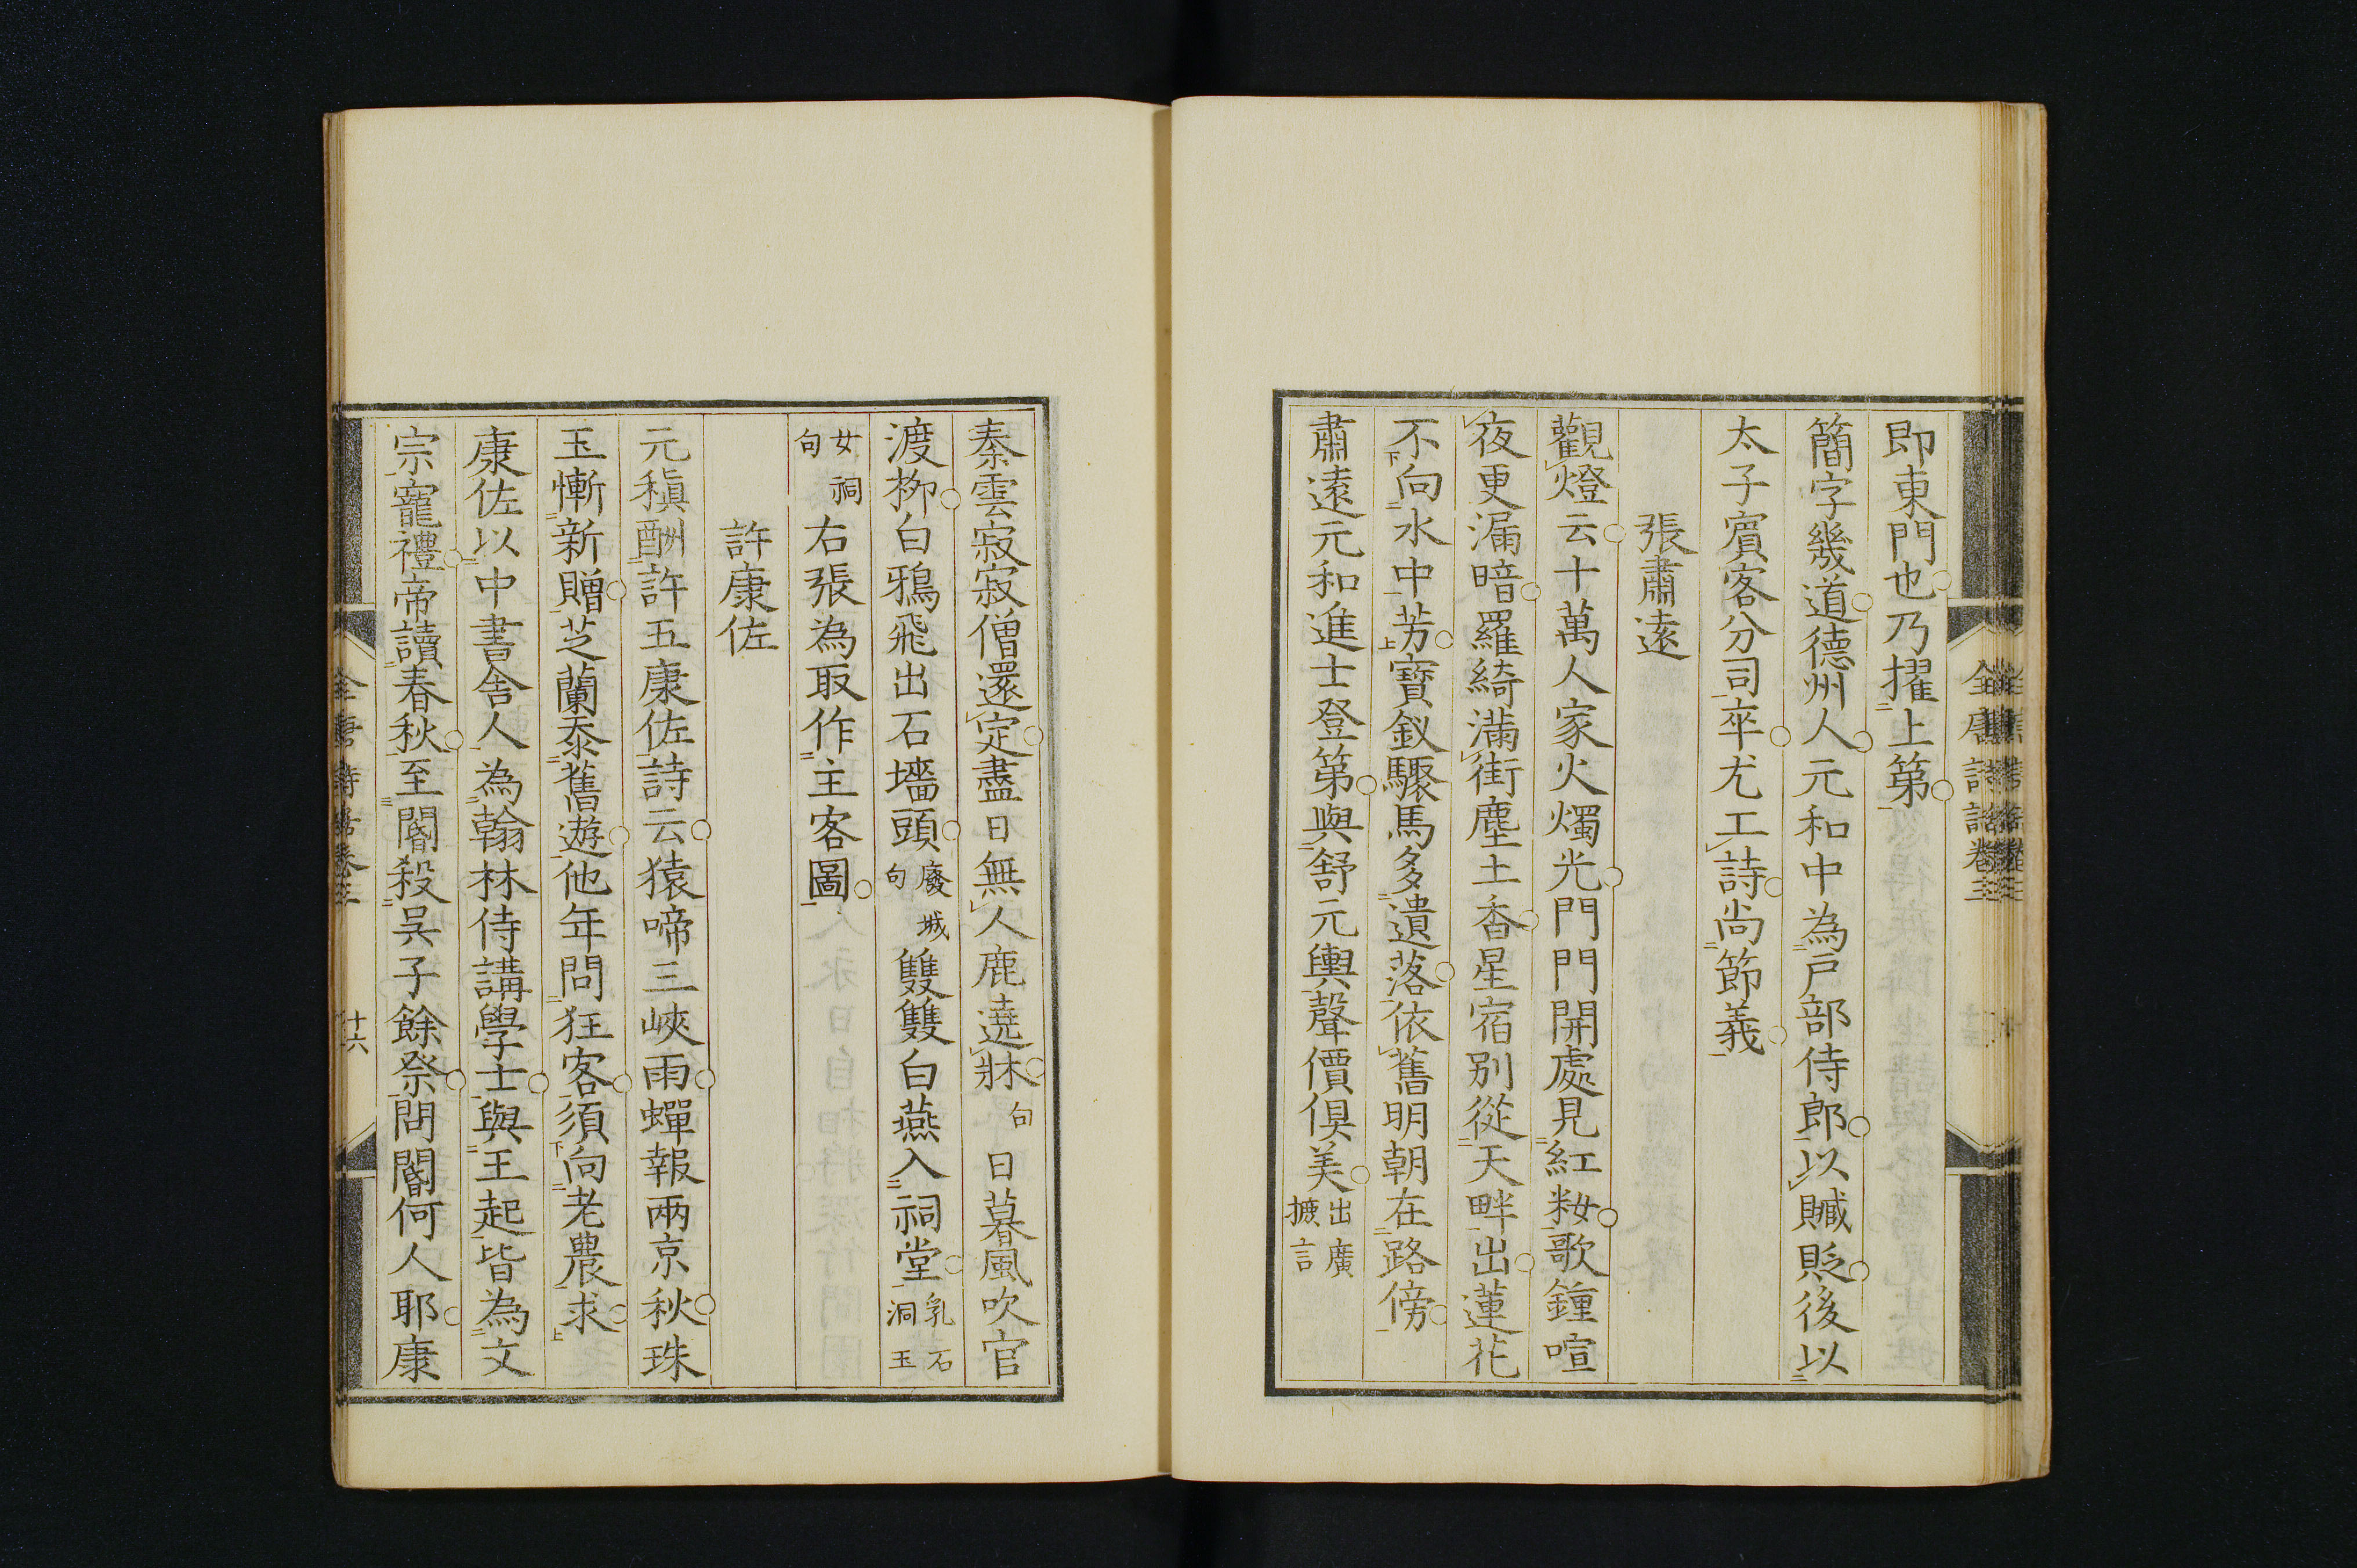 即東門也乃擢上第
簡字幾道德州人元和中為戸部侍郎以贓貶後以
太子賓客分司卒尤工詩尚節義
張肅遠
觀燈云十萬人家火燭光門門開處見紅粧歌鐘喧
夜更漏暗羅綺滿街塵土香星宿別從天畔出蓮花
不向水中芳寶釵驟馬多遺落依舊明朝在路傍
肅遠元和進士登第與舒元輿聲價俱美出廣摭言
秦雲寂寂僧還定盡日無人鹿遶牀句 日暮風吹官
渡柳白鴉飛出石墻頭廢城句 雙雙白燕入祠堂乳石洞玉
女祠句 右張為取作主客圖
許康佐
元稹酬許五康佐詩云猿啼三峽雨蟬報兩京秋珠
玉慚新贈芝蘭忝舊遊他年問狂客須向老農求
康佐以中書舍人為翰林侍講學士與王起皆為文
宗寵禮帝讀春秋至閽殺吳子餘祭問閽何人耶康
全唐詩話卷三
十六